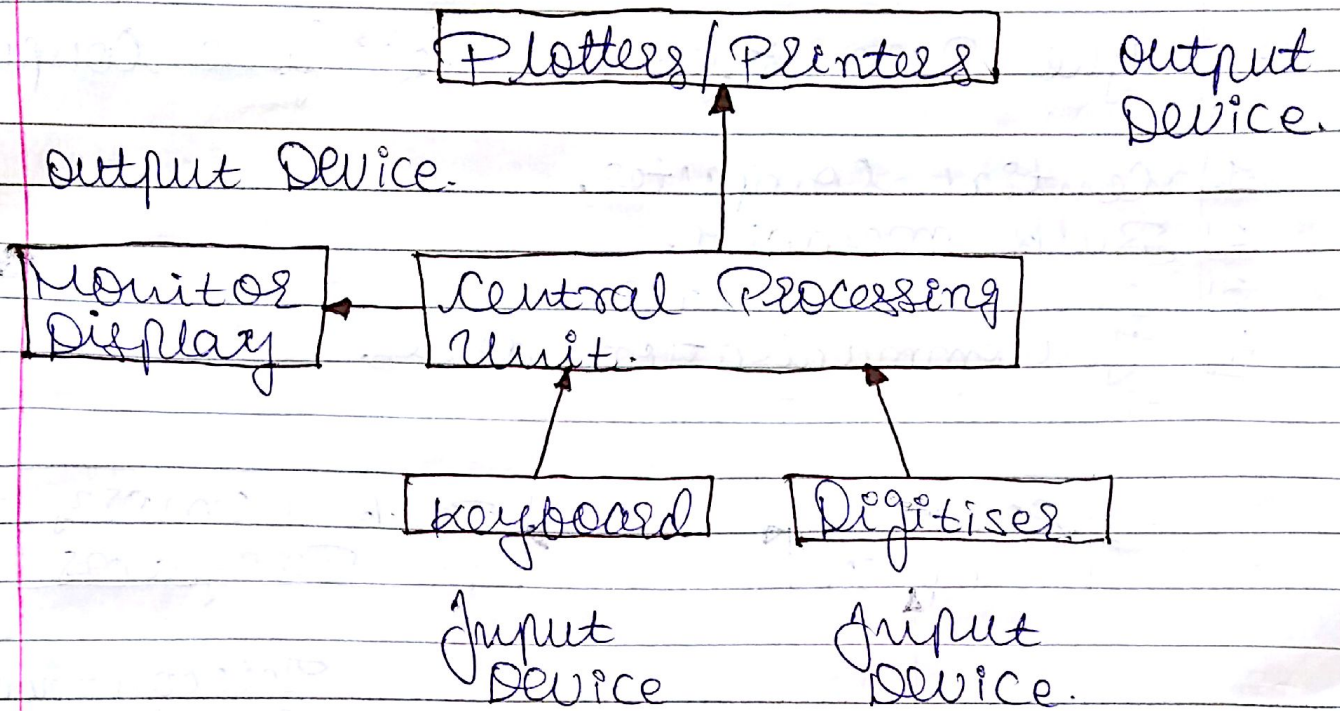 Plotters/Printers
Output
Device.
Output Device.
Monitor
Display
Central Processing
Unit.
Keyboard
Digitiser.
Input
Device
Input
Device.